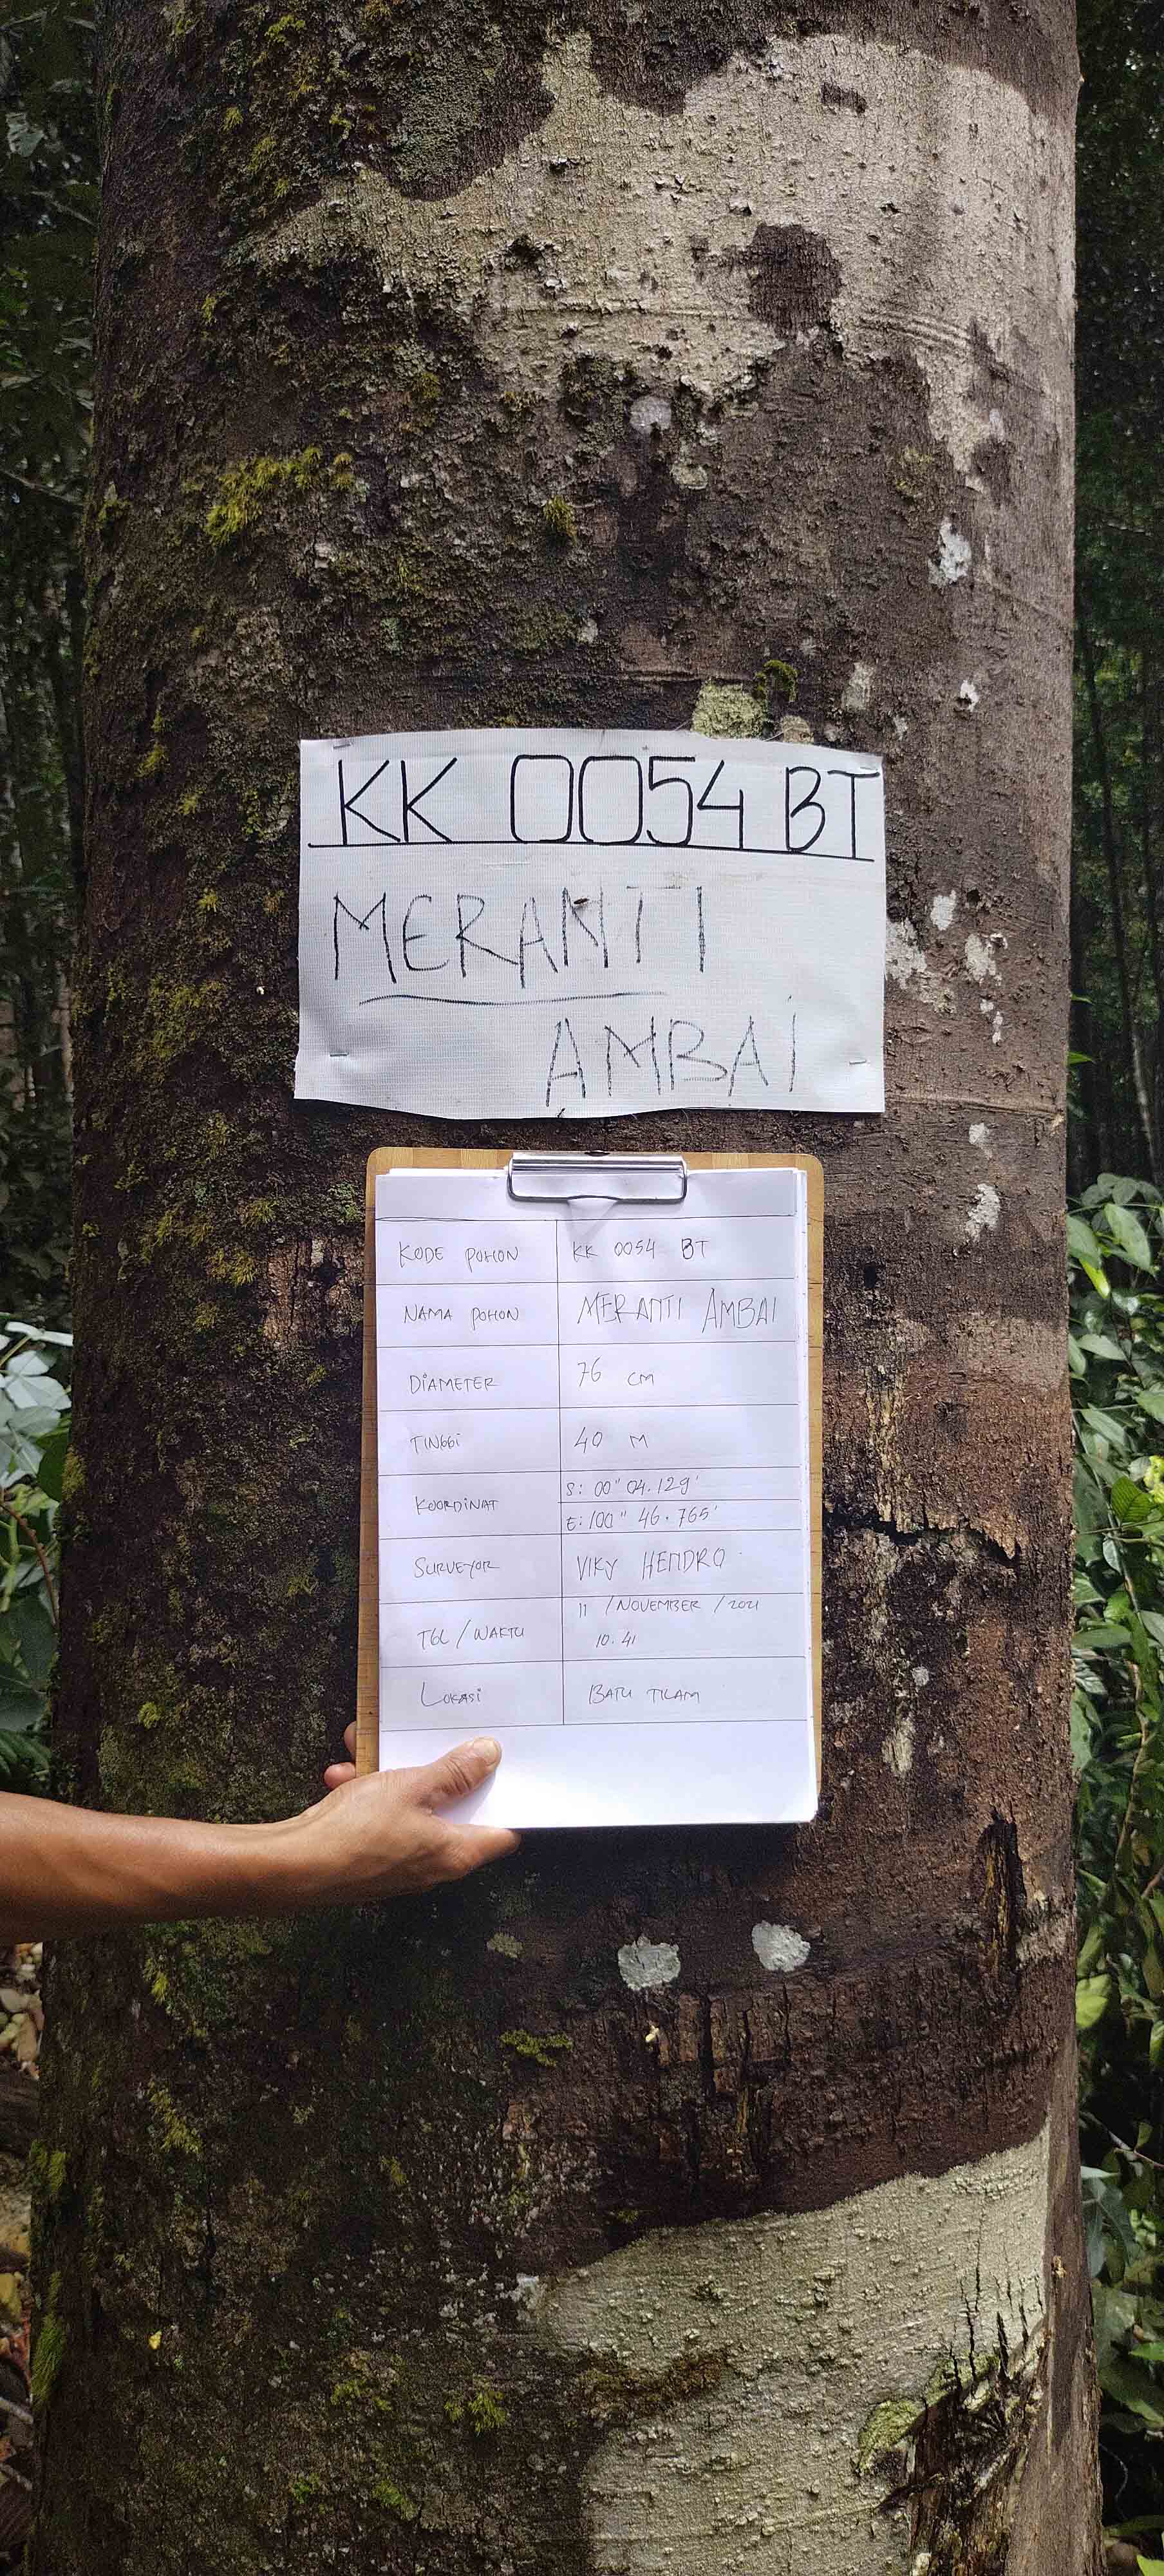 KK 0054 BT
MERANTI
AMBAI
KODE POHON KK 0054 BT
NAMA POHON MERANTI AMBAI
DIAMETER 76 CM
TINGGI 40 M
KOORDINAT S: 00" 04.129'
E: 100" 46.765'
SURVEYOR VIKY HENDRO
TGL / WAKTU 11 / NOVEMBER / 2021
10.41
LOKASI BATU TILAM